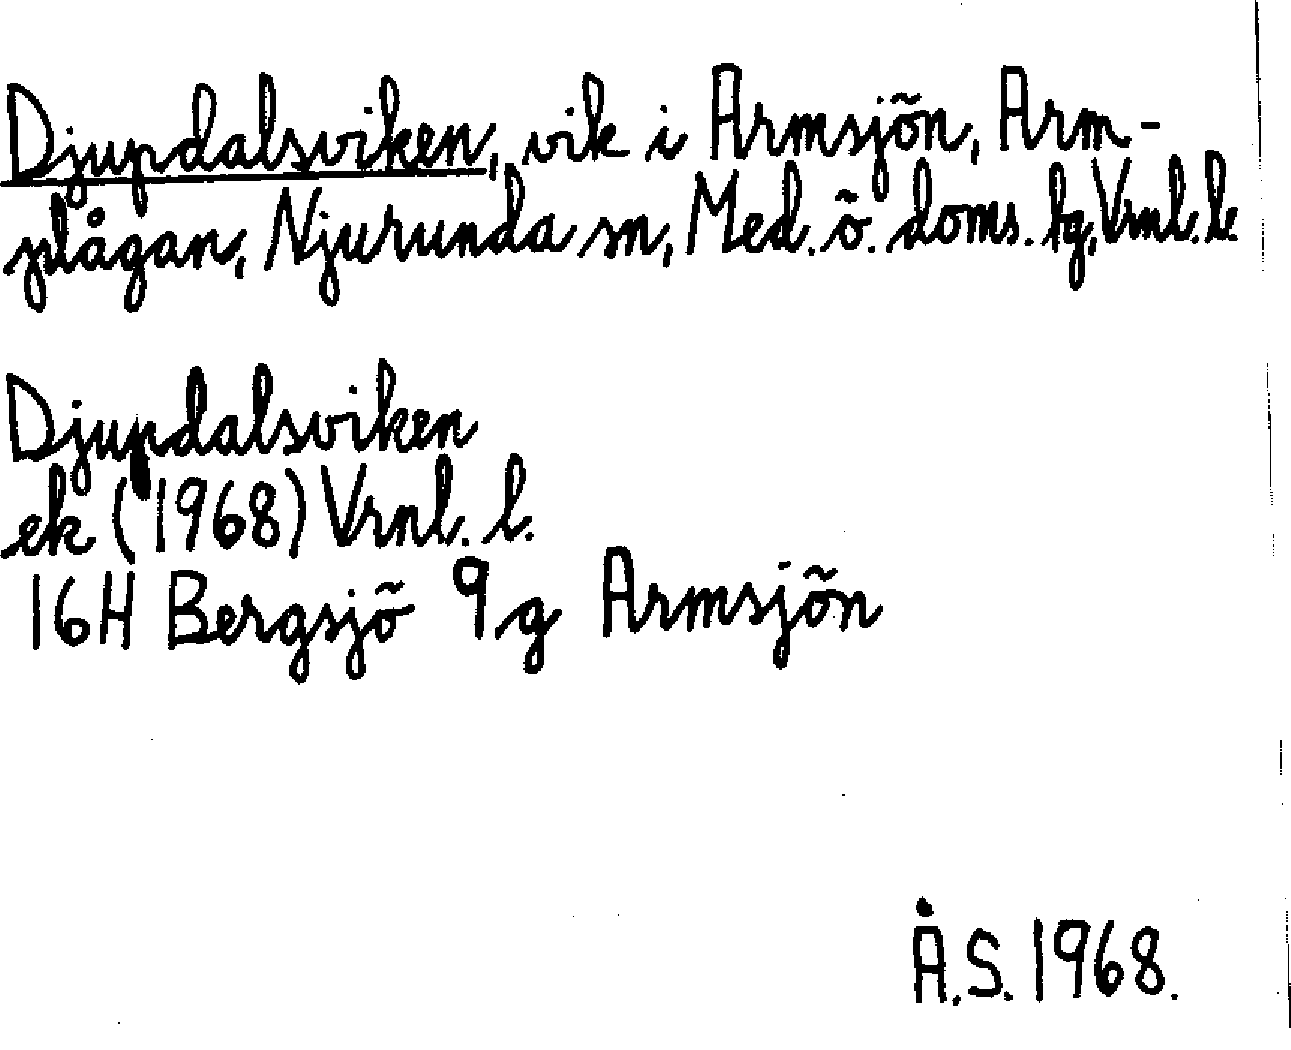 Djupdalsviken, vik i Armsjön, Arm-
plågan, Njurunda sn, Med. ö. doms. hg, Vrnl. l.
Djupdalsviken
ek (1968) Vrnl. l.
16H Bergsjö 9g Armsjön
Å.S. 1968.